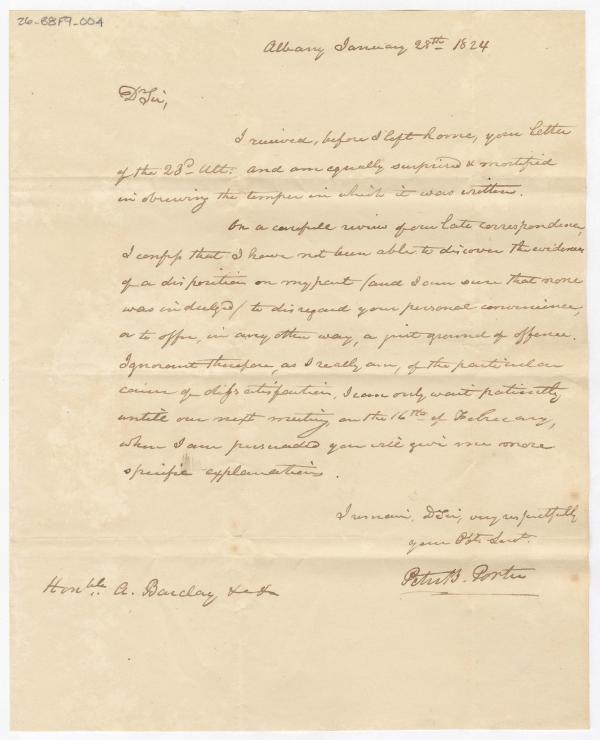 26-88F9-004
Albany January 28th 1824
Dr Sir,
I received, before I left home, your letter
of the 23d Ult. and am equally surprised & mortified
in observing the temper in which it was written.
On a carefull review of our late correspondence,
I confess that I have not been able to discover the evidence
of a disposition on my part (and I am sure that none
was indulged) to disregard your personal convenience,
or to offer, in any other way, a just ground of offence.
Ignorant therefore, as I really am, of the particular
causes of dissatisfaction, I can only wait patiently
untill our next meeting on the 16th of February,
when I am persuaded you will give me more
specific explanations.
I remain, D Sir, very respectfully
your Obt. Servt.
Peter B. Porter
Honble. A. Barclay &c &c